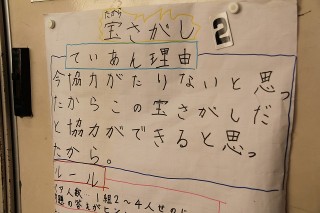 たから
宝さがし
2
ていあん理由
今協力がたりないと思っ
たからこの宝さがしだ
と協力ができると思っ
たから。
ルール
人数 1組2〜4人